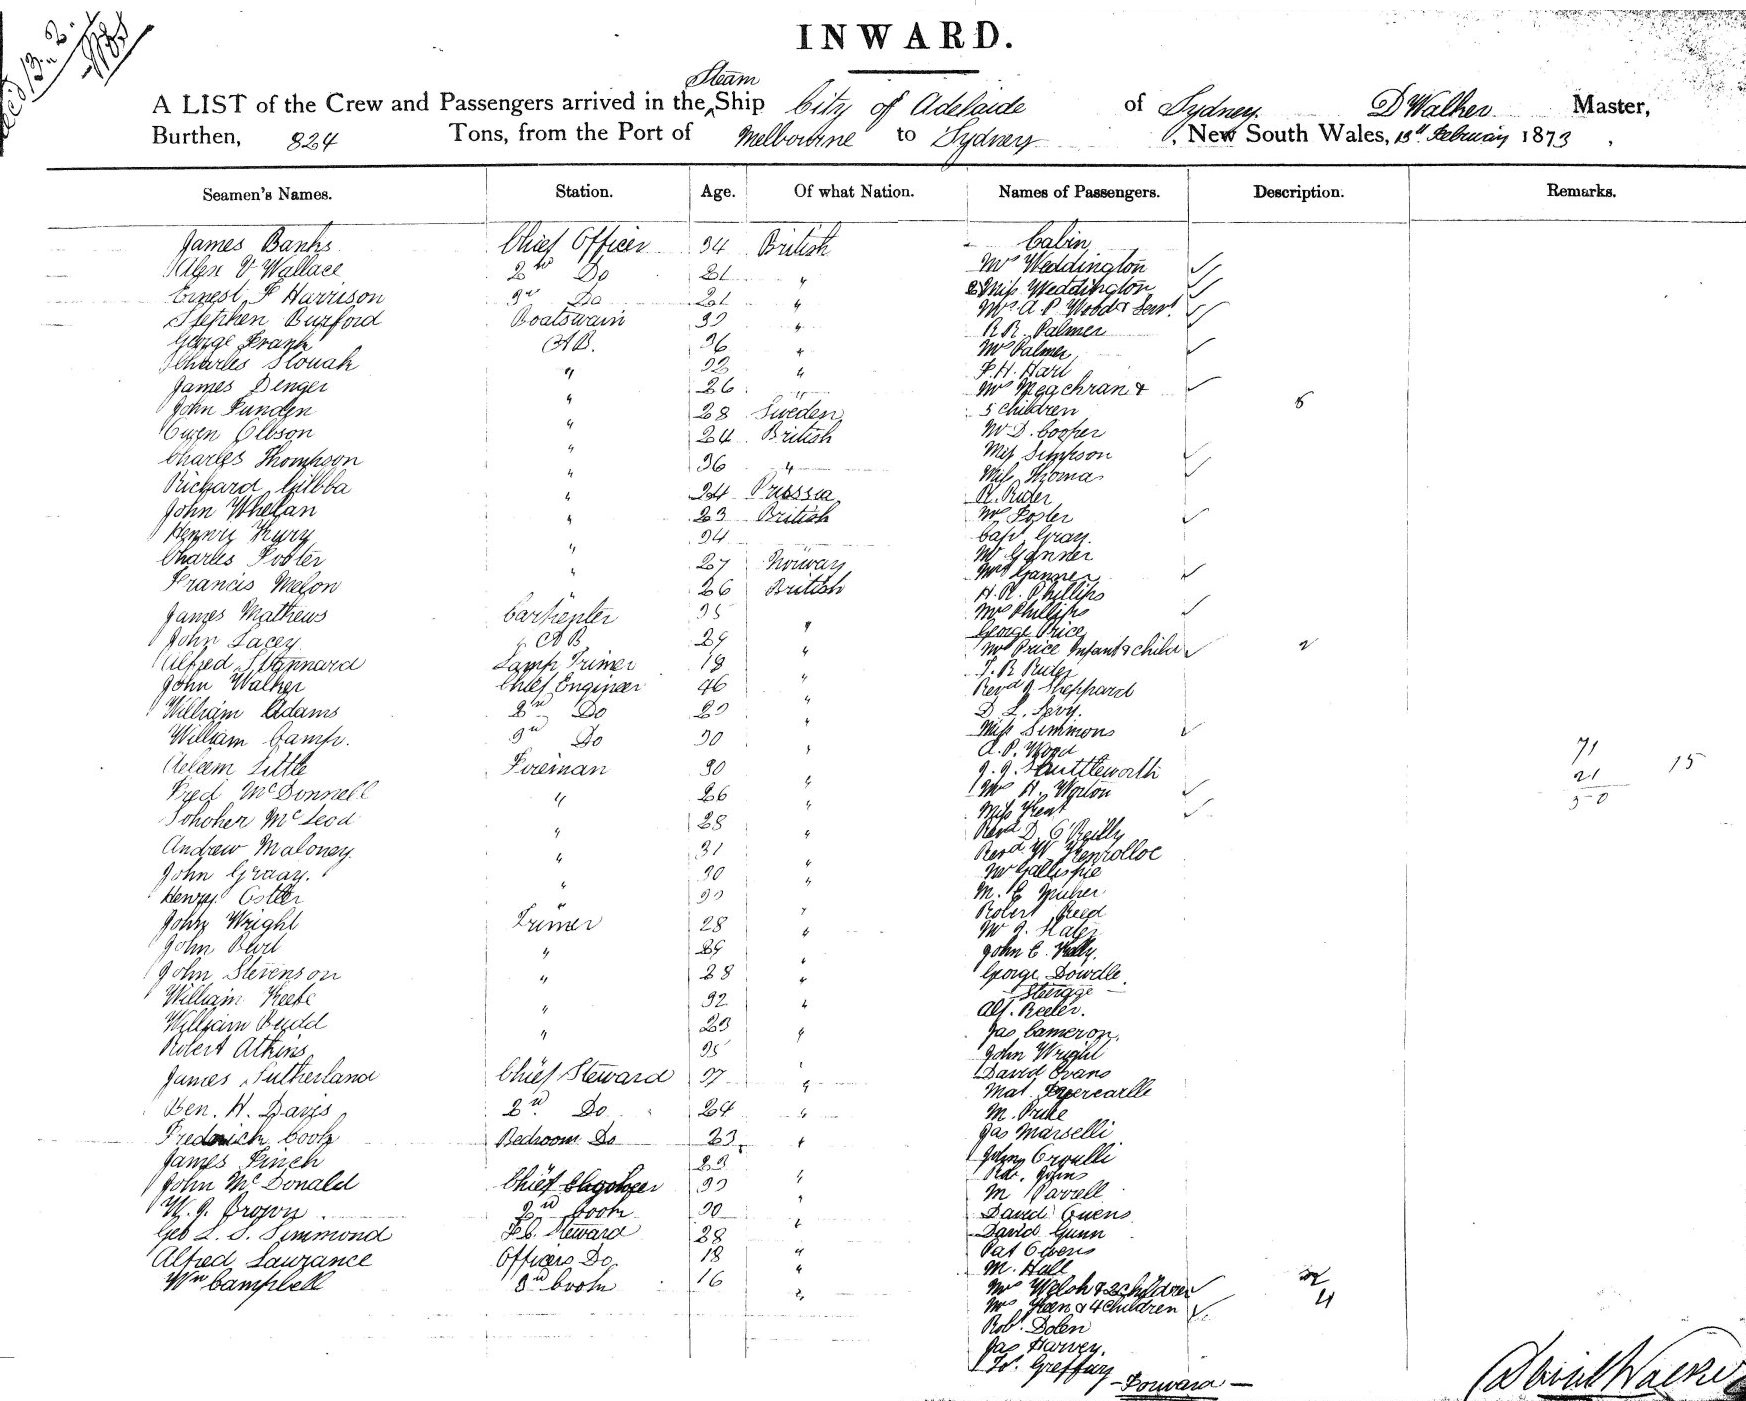 13. 2.
INWARD.
Steam
A LIST of the Crew and Passengers arrived in the Ship City of Adelaide of Sydney D Walker Master,
Burthen, 824 Tons, from the Port of Melbourne to Sydney, New South Wales, 13th February 1873,
Seamen's Names. Station. Age. Of what Nation. Names of Passengers. Description. Remarks.
James Banks Chief Officer 34 British Cabin
Alex V Wallace 2nd Do 21 " Mrs Weddington
Ernest F Harrison 3rd Do 21 " 2 Miss Weddington
Stephen Burford Boatswain 33 " Mrs A P Wood & Servt
George Frank AB. 36 " R R. Palmer
Charles Slouah " " Mrs Palmer
James Denger " 26 " F. H. Hart
John Funden " 28 Sweden Mrs &
Owen Olbson " 24 British 5 children 5
Charles Thompson " 36 " W D. Cooper
Richard Gilbba " 24 Prussia Miss Simpson
John Whelan " 23 British Miss Thomas
Henry 34 R. Rider
Charles Foster " 27 Norway Mrs Foster
Francis Melon " 26 British Capt Gray
James Mathews Carpenter 35 " Mr Ganner
John Lacey AB 29 " Mrs Ganner
Alfred Stannard Lamp Trimer 18 " H. R. Phillips
John Walker Chief Engineer 46 " Mrs Phillips
William Adams 2nd Do " George Price
William Camp. 3rd Do 30 " Mrs Price Infant & child 2
Little Fireman 30 " T. R Rider
Fred McDonnell " 26 " Revd J. Sheppard
McLeod " 28 " D L. Levy.
Andrew Maloney " 31 " Miss Simmons
John Graay. " 30 " A. P. Wood
Henry " 33 " J. J. Shuttleworth
John Wright Trimer 28 " Mrs H. Worton
John " 29 " Miss Kent
John Stevenson " 28 " Revd D. O'Reilly
William Keefe " 32 " Revd W
William Budd " 23 " Mr Gallispie
Robert Atkins 35 " M. E
James Sutherland Chief Steward 37 " Robert Reed
Ben. H. Davis 2nd Do 24 " W J. Hales
Frederick Cook Bedroom Do 23 " John E. Kelly.
James Finch 23 George Dowdle
John McDonald Chief 33 " Steerage
W. J. Brown 2nd Cook 30 " Alf. Beeler.
Geo L. S. Simmond F.C. Steward 28 " Jas Cameron
Alfred Laurance Officers Do 18 " John Wright
Wm Campbell 3rd Cook 16 " David Evans
Mat
M. Puke
Jas Marselli
John Croulli
Robt. Johns
M Farrell
David Owens
David Gunn
Pat Owens
M. Hall
Mrs Welsh & 2 children 2
Mrs Keen & 4 children 4
Rob. Dolen
Jas Harvey.
Jo. Greffary
Forward
71
21 15
50
David Walker